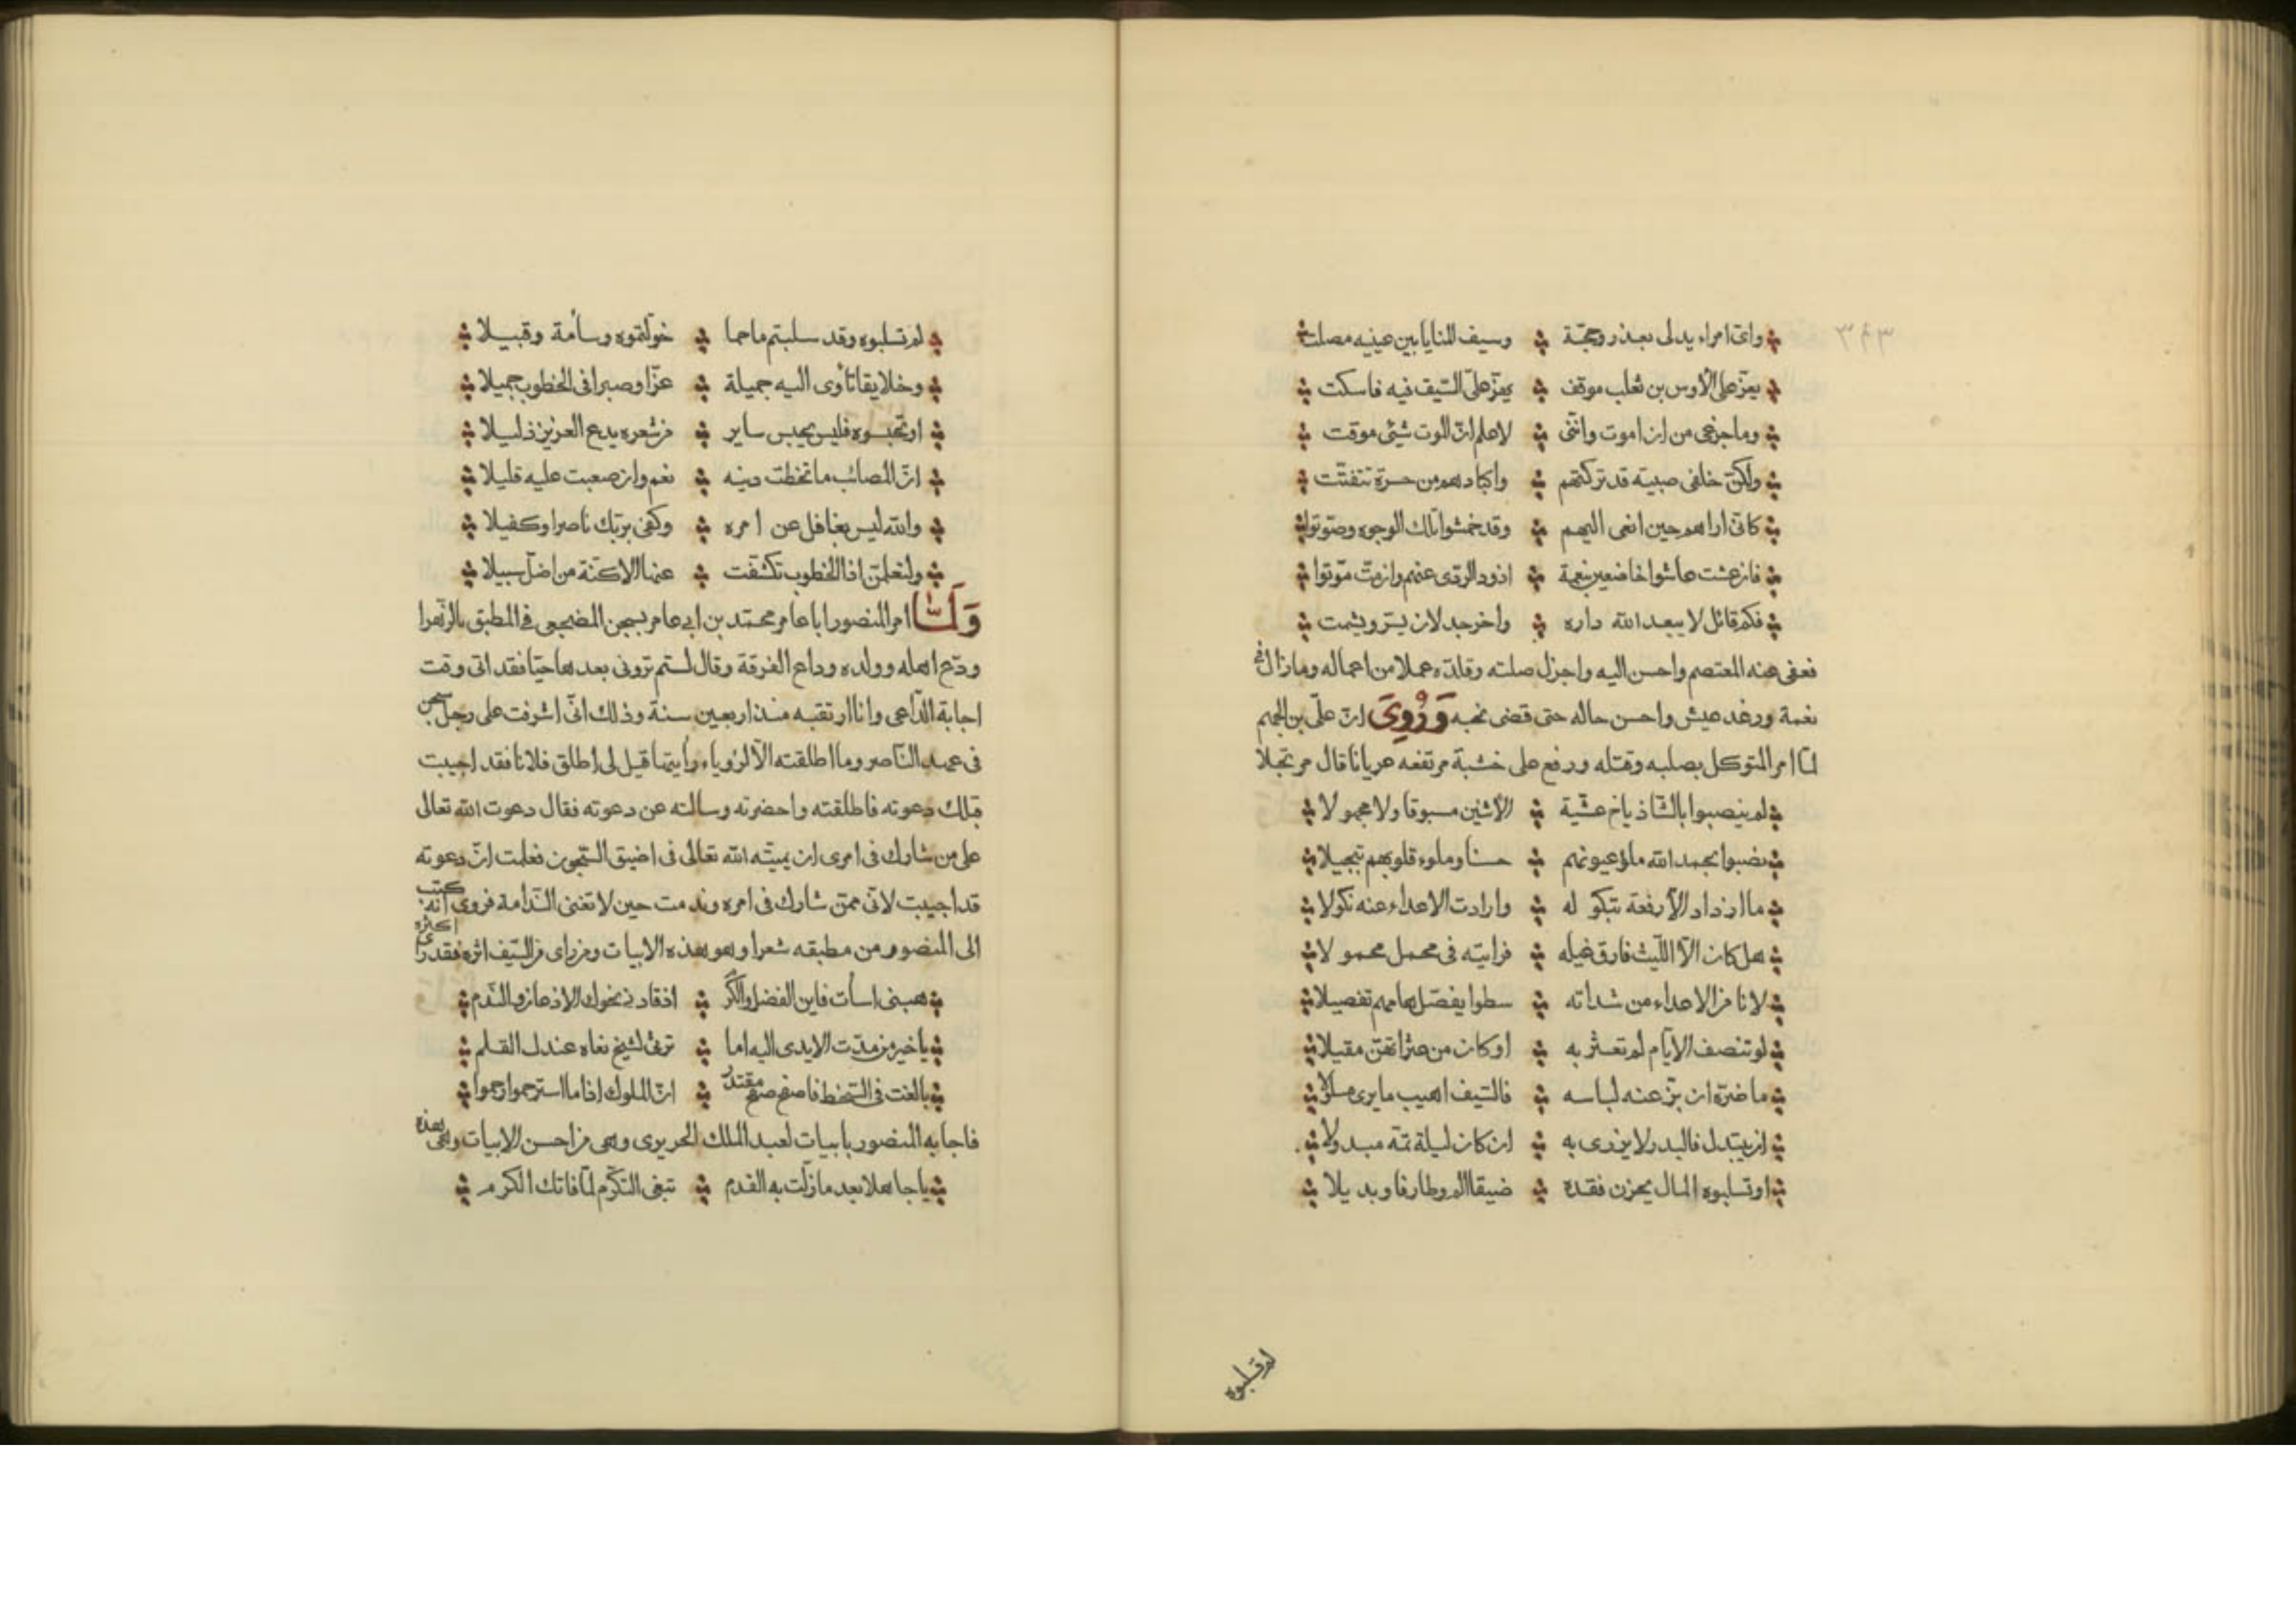 ٣٩٣
واىّ امراء يدلى بعذر وحجّة وسيف المنايا بين عينيه مصلت
يعزّ على الأوس بن تغلب موقف يعزّ علىّ السّيف فيه فاسكت
وما جزعى من ان اموت وانّنى لاعلم انّ الموت شيئ موقت
ولكنّ خلفى صبية قد تركتهم واكبادهم من حسرة تتفتّت
كانّى اراهم حين انعى اليهم وقد خمشوا تلك الوجوه وصوّتوا
فان عشت عاشوا خافضين بنعمة اذود الردى عنهم وان متّ موّتوا
فكم قائل لا يبعد الله داره واخر جدلان يسرّ ويشمت
فعفى عنه المعتصم واحسن اليه واجزل صلته وقلدّه عملا من اعماله وما زال فى
نعمة ورغد عيش واحسن حاله حتى قضى نحبه وَرُوِىَ انّ علىّ بن الجهم
لمّا امر المتوكل بصلبه وقتله ورفع على خشبة مرتفعه عريانا قال مرتجلا
لم ينصبوا بالشّاذياخ عشّية الأثنين مسبوقا ولا مجهولا
نصبوا بحمد الله ملؤ عيونهم حسنا وملوء قلوبهم تبجيلا
ما ازداد الّا رفعة بنكوله وارادت الاعداء عنه نكولا
هل كان الّا اللّيث فارق غيله فرايته فى محمل محمولا
لا نامن الاعداء من شداته سطوا يفصّل هامهم تفصيلا
لو تنصف الايّام لم تعثر به او كان من عثراتهنّ مقيلا
ما ضرّه ان بزّ عنه لباسه فالسّيف اهيب ما يرى مسلولا
ان يبتدل فالبدر لا يزرى به ان كان ليلة تمّه مبدولا
او تسلبوه المال يحزن فقده ضيقا الم وطارفا وبديلا
لم تسلبوه
لم تسلبوه وقد سلبتم ما حما خولّتموه وسأمة وقبيلا
وخلايقا تأوى اليه جميلة عزّا وصبرا فى الخطوب جميلا
او تحبسوه فليس يحبس ساير من شعره يدع العزيز ذليلا
انّ المصائب ما تخطت دينه نعم وان صعبت عليه قليلا
والله ليس بغافل عن امره وكفى بربّك ناصرا وكفيلا
ولتعلمنّ اذا الخطوب تكشّفت عنها الاكنّة من اضلّ سبيلا
وَلَمَّا امر المنصور ابا عامر محمّد بن ابى عامر بسجن المضجعى فى المطبق بالزّهرا
ودّع اهله وولده وداع الفرقة وقال لستم ترونى بعدها حيّا فقد اتى وقت
اجابة الدّاعى وانا ارتقبه منذ اربعين سنة وذلك انّى اشرفت على رجل سجن
فى عهد النّاصر وما اطلقته الّا لرؤياء رأيتها قيل لى اطلق فلانا فقد اجيبت
فيك دعوته فاطلقته واحضرته وسالته عن دعوته فقال دعوت الله تعالى
على من شارك فى امرى ان يميته الله تعالى فى اضيق السّجون فعلمت انّ دعوته
قد اجيبت لانّى ممّن شارك فى امره وندمت حين لا تغنى النّدامة فروى انّه كتب
الى المنصور من مطبقه شعرا وهو هذه الابيات ومن راى من السّيف اثره فقد راى اكثره
هبنى اسأت فاين الفضل والكرم اذ قادنى نحوك الاذعان والنّدم
يا خير من مدّت الايدى اليه اما ترثى لشيخ نعاه عندك القلم
بالغت فى السّخط فاصفح صفح مقتدر انّ الملوك اذا ما استرحموا رحموا
فاجابه المنصور بابيات لعبد الملك الحريرى وهى من احسن الابيات وهى هذه
يا جاهلا بعد ما زلّت به القدم تبغى التكرّم لمّا فاتك الكرم